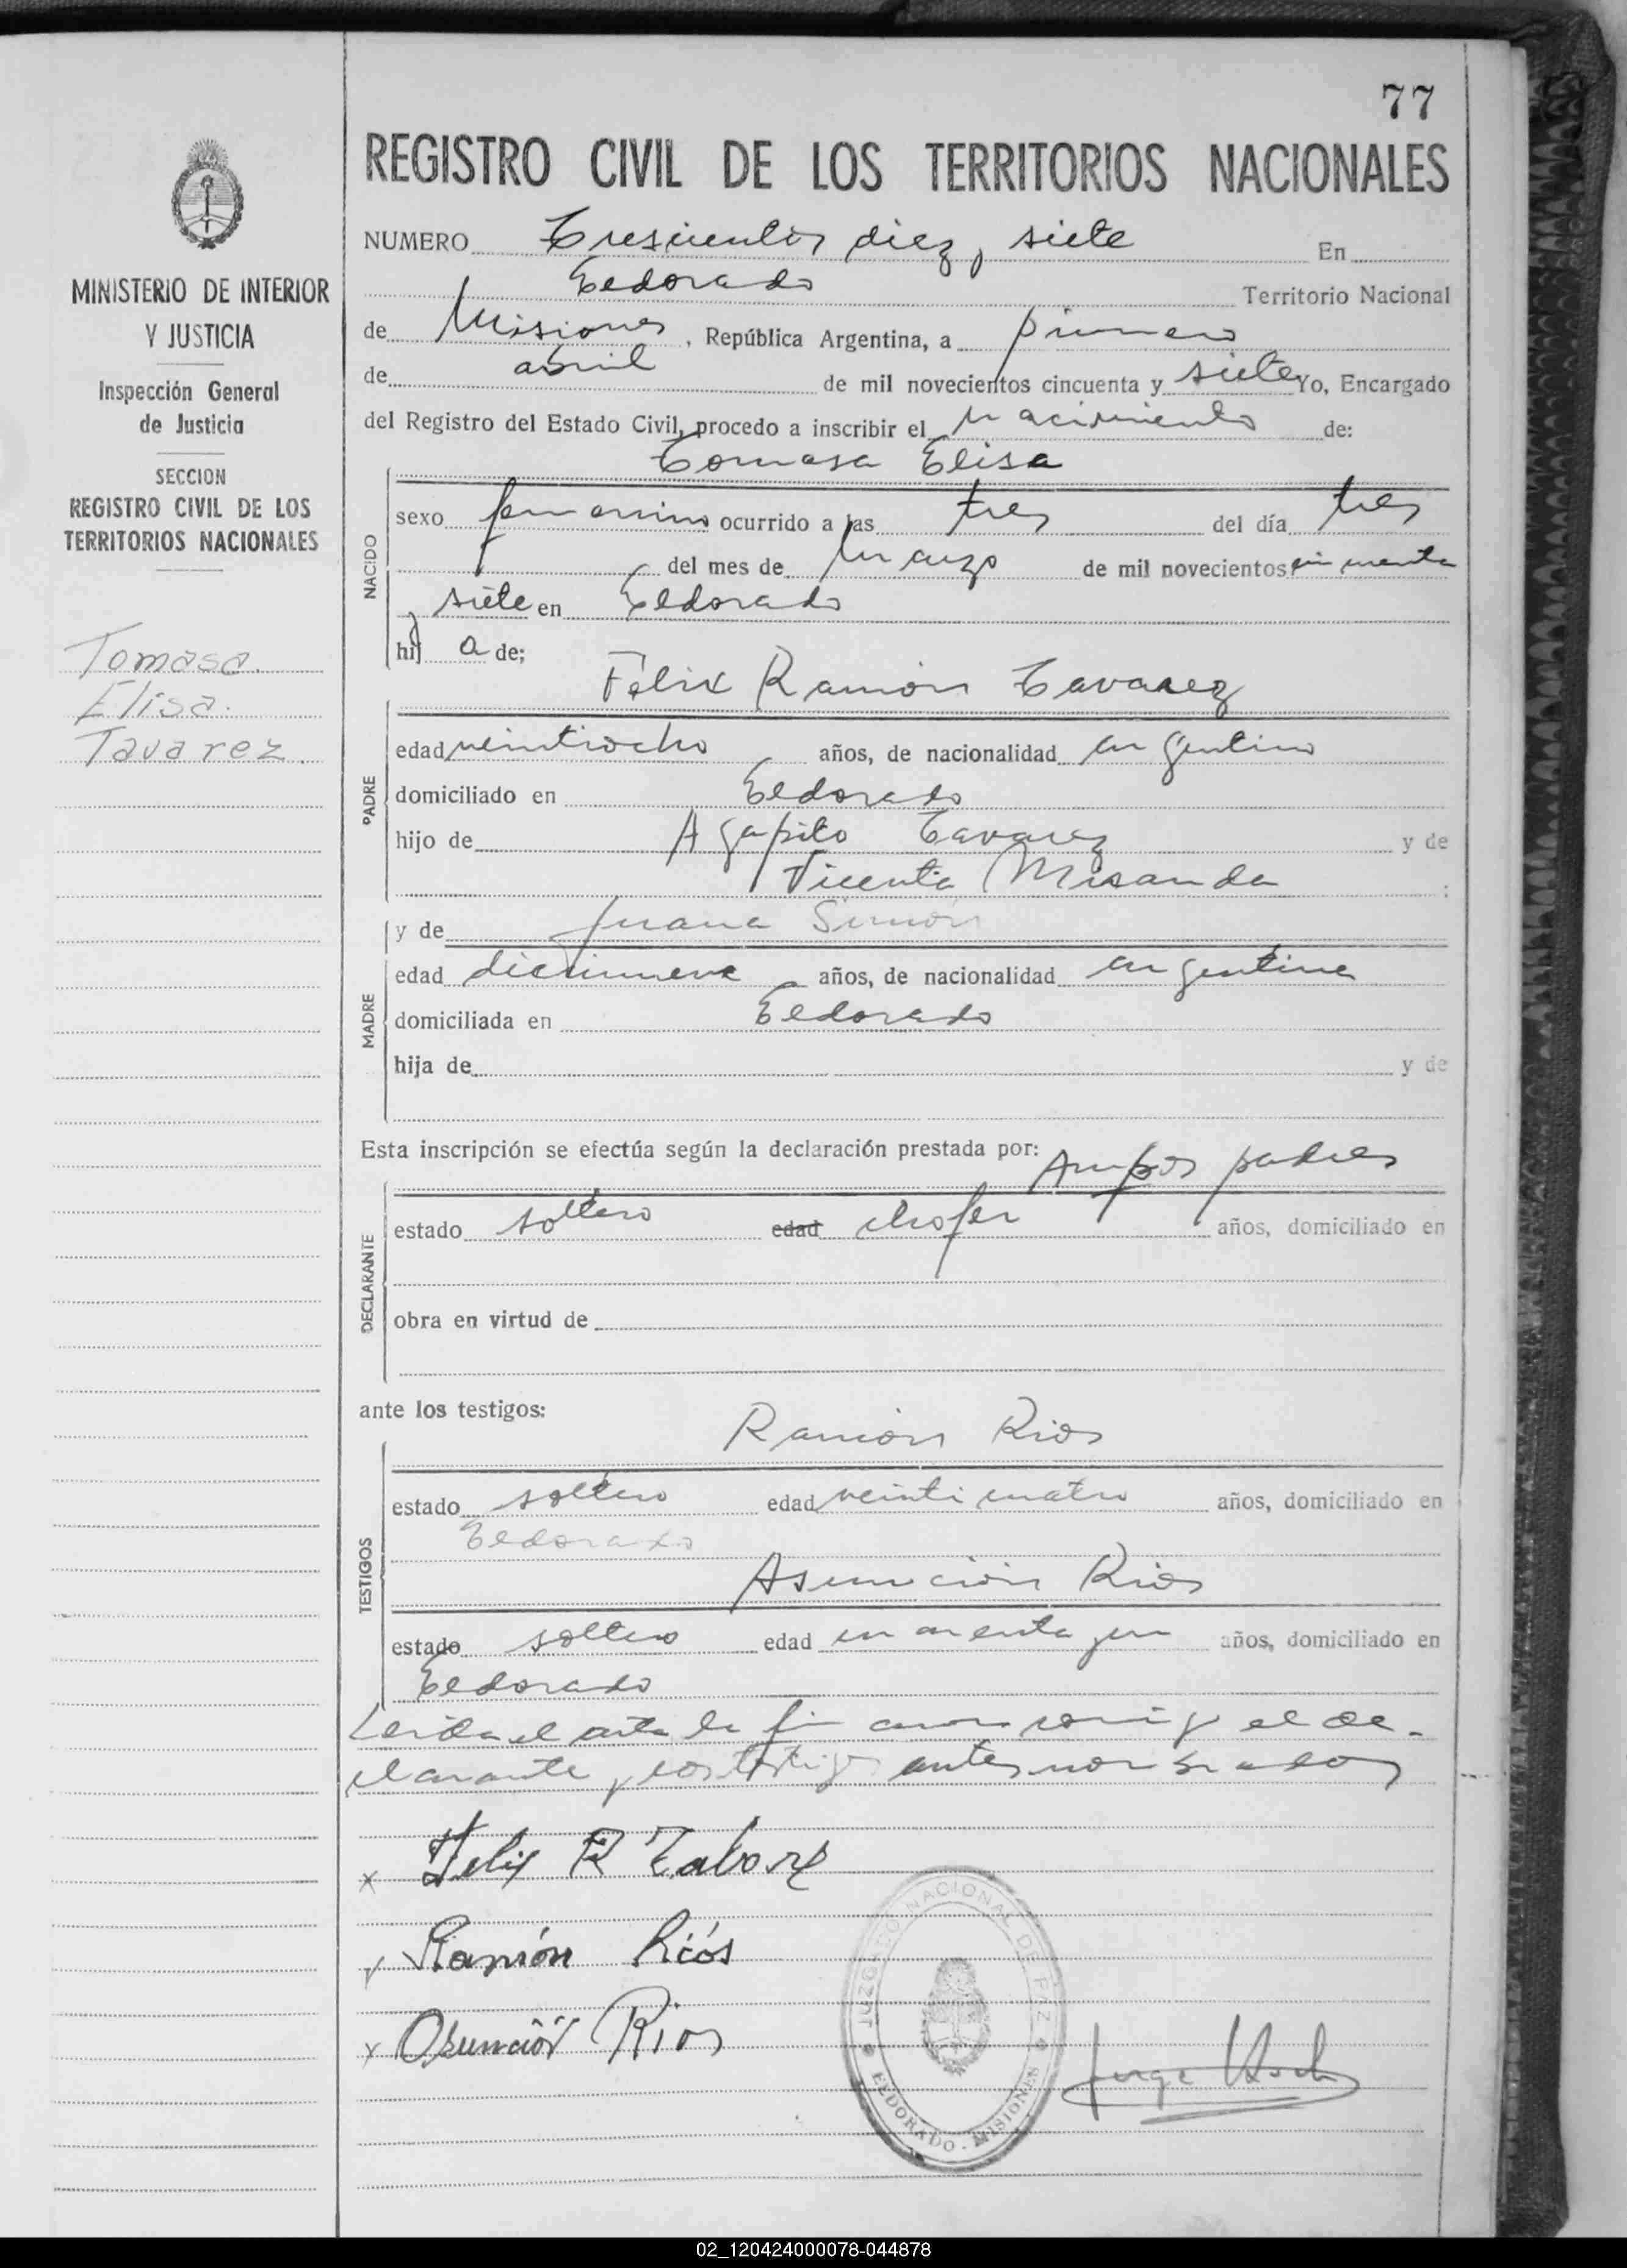 77
REGISTRO CIVIL DE LOS TERRITORIOS NACIONALES
MINISTERIO DE INTERIOR
Y JUSTICIA
Inspección General
de Justicia
SECCION
REGISTRO CIVIL DE LOS
TERRITORIOS NACIONALES
Tomasa
Elisa
Tavarez
NUMERO Trescientos diez y siete En
Eldorado Territorio Nacional
de Misiones, República Argentina, a primero
de abril de mil novecientos cincuenta y siete Yo, Encargado
del Registro del Estado Civil, procedo a inscribir el nacimiento de:
Tomasa Elisa
NACIDO
sexo femenino ocurrido a las tres del día tres
del mes de Marzo de mil novecientos cincuenta
y siete en Eldorado
hij a de;
Félix Ramón Tavarez
PADRE
edad veintiocho años, de nacionalidad argentino
domiciliado en Eldorado
hijo de Agapito Tavarez y de
Vicenta Miranda
y de Juana Simón
MADRE
edad diecinueve años, de nacionalidad argentina
domiciliada en Eldorado
hija de y de
Esta inscripción se efectúa según la declaración prestada por: Ambos padres
DECLARANTE
estado soltero edad chofer años, domiciliado en
obra en virtud de
ante los testigos:
Ramón Rios
TESTIGOS
estado soltero edad veinticuatro años, domiciliado en
Eldorado
Asunción Rios
estado soltero edad años, domiciliado en
Eldorado
Leida el acta la conmigo el de-
clarante y los testigos antes nombrados
x Felix R
Ramón Ríos
x Asunción Rios
JUZGADO NACIONAL DE PAZ
ELDORADO - MISIONES
Jorge
02_120424000078-044878